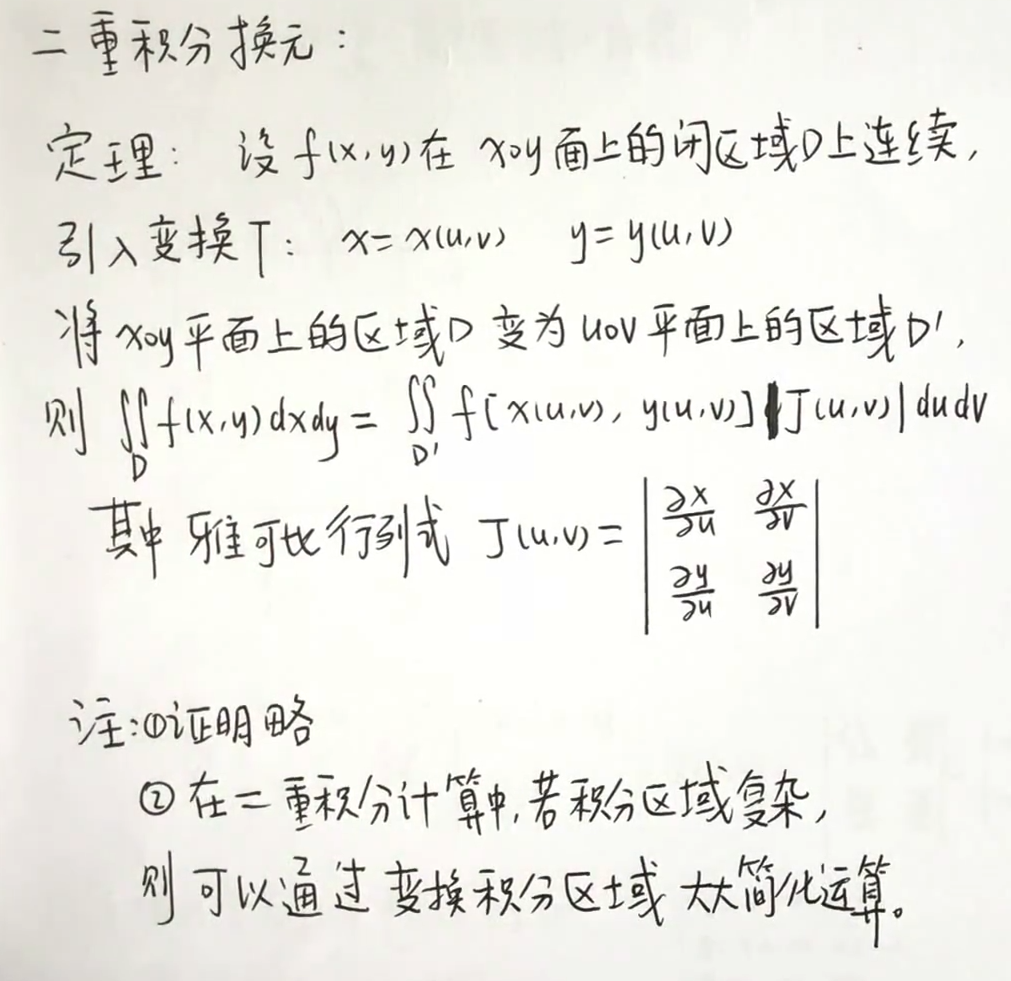 二重积分换元:
定理: 设 f(x,y) 在 xoy 面上的闭区域D上连续,
引入变换T: x=x(u,v) y=y(u,v)
将 xoy 平面上的区域D 变为 uov 平面上的区域D',
则 ∬_D f(x,y)dxdy = ∬_D' f[x(u,v), y(u,v)] |J(u,v)| dudv
其中 雅可比行列式 J(u,v) = | ∂x/∂u ∂x/∂v |
| ∂y/∂u ∂y/∂v |
注:①证明略
②在二重积分计算中,若积分区域复杂,
则可以通过变换积分区域 大大简化运算。